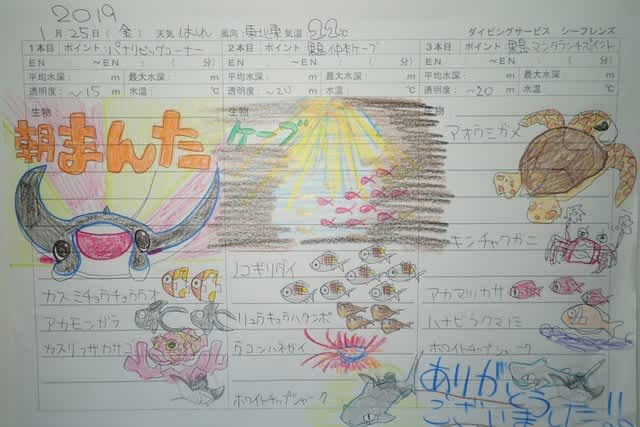 2019
1月25日(金) 天気 はれ 風向 東北東 気温 22℃ ダイビングサービス シーフレンズ
1本目 ポイント パナリビッグコーナー
EN : ～EN : ( 分)
平均水深: m 最大水深: m
透明度: ~15 m 水温: ℃
生物:
朝まんた
カスミチョウチョウウオ
アカモンガラ
2本目 ポイント
EN : ～EN : ( 分)
平均水深: m 最大水深: m
透明度: ~20 m 水温: ℃
生物:
ケーブ
ノコギリダイ
リュウキュウハタンポ
ウコンハネガイ
ホワイトチップシャーク
3本目 ポイント
EN : ～EN : ( 分)
平均水深: m 最大水深: m
透明度: ~20 m 水温: ℃
生物:
アオウミガメ
キンチャクガニ
アカマツカサ
ハナビラクマノミ
ホワイトチップシャーク
ありがとう
ございました!!